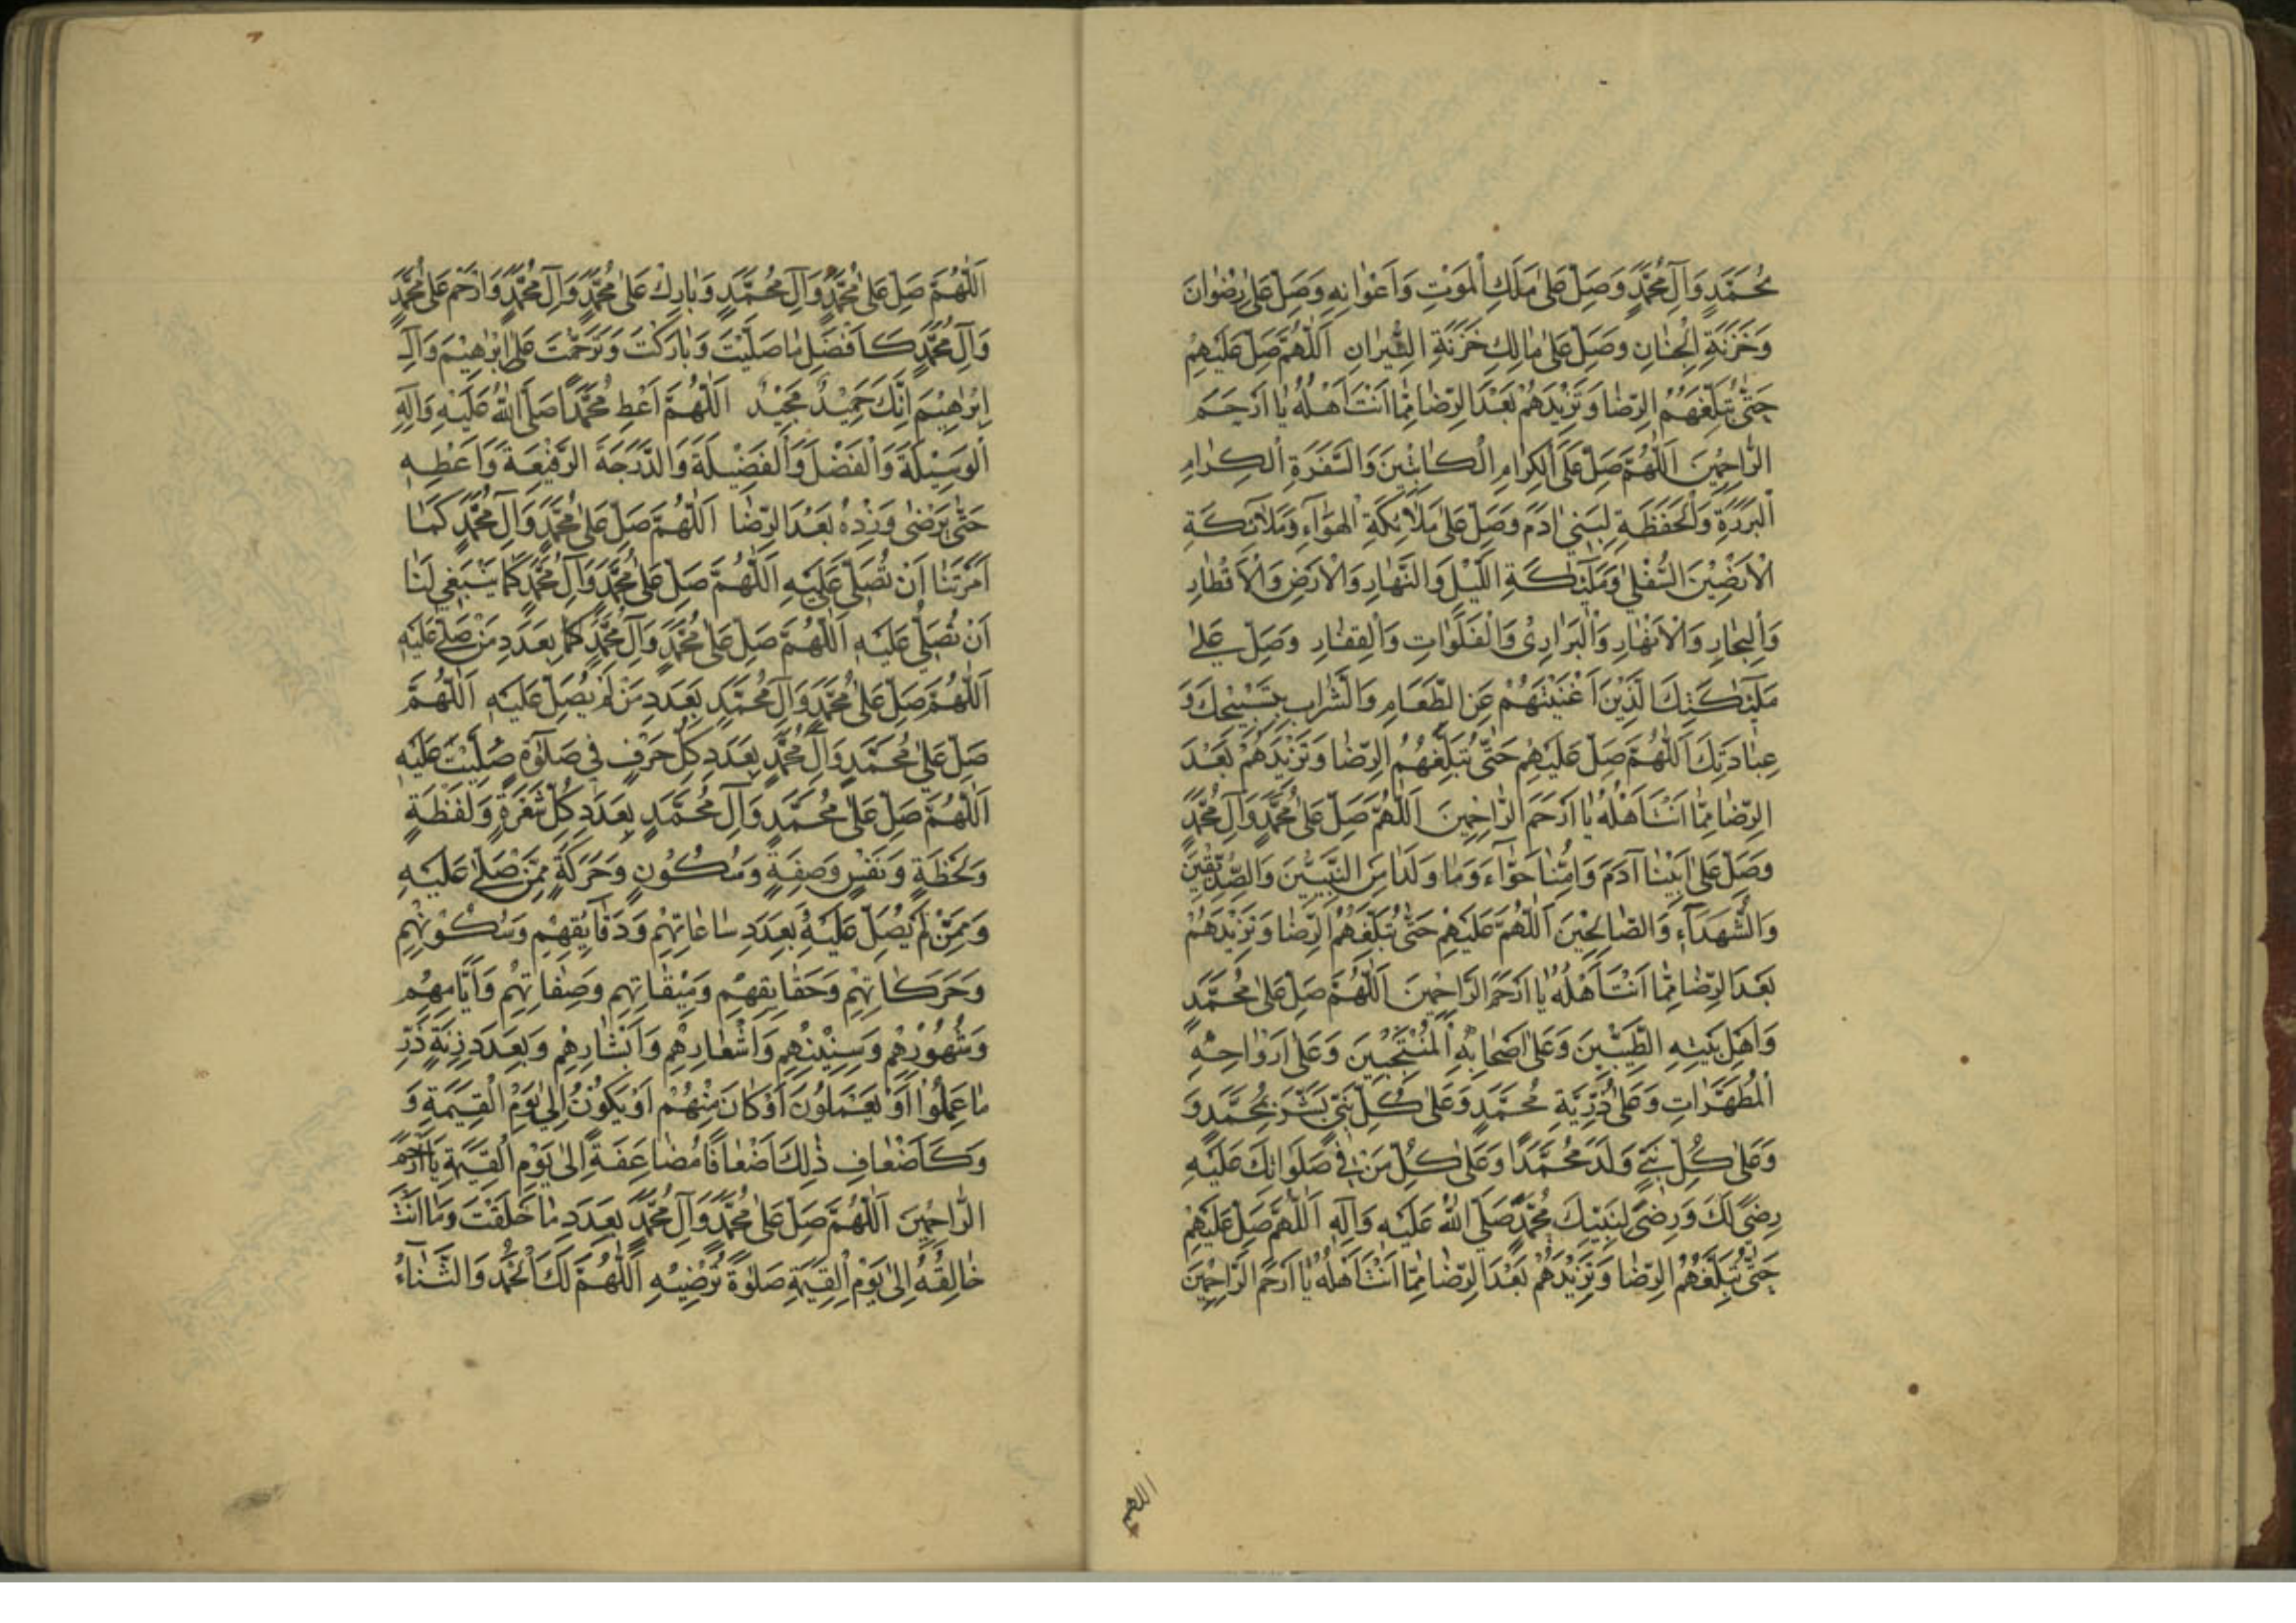 مُحَمَّدٍ وَآلِ مُحَمَّدٍ وَصَلِّ عَلىٰ مَلَكِ الْمَوْتِ وَاَعْوٰانِهِ وَصَلِّ عَلىٰ رِضْوٰانَ
وَخَزَنَةِ الْجِنٰانِ وَصَلِّ عَلىٰ مٰالِكٍ خَزَنَةِ النّٖيرٰانِ اَللّٰهُمَّ صَلِّ عَلَيْهِمْ
حَتّٰى تُبَلِّغَهُمُ الرِّضٰا وَتَزٖيْدَهُمْ بَعْدَ الرِّضٰا مِمّٰا اَنْتَ اَهْلُهُ يٰا اَرْحَمَ
الرّٰاحِمٖيْنَ اَللّٰهُمَّ صَلِّ عَلَى الْكِرٰامِ الْكٰاتِبٖيْنَ وَالسَّفَرَةِ الْكِرٰامِ
الْبَرَرَةِ وَالْحَفَظَةِ لِبَنٖي اٰدَمَ وَصَلِّ عَلىٰ مَلاٰئِكَةِ الْهَوٰآءِ وَمَلاٰئِكَةِ
الْاَرَضٖيْنَ السُّفْلىٰ وَمَلٰٓئِكَةِ اللَّيْلِ وَالنَّهٰارِ وَالْاَرْضِ وَالْاَقْطٰارِ
وَالْبِحٰارِ وَالْاَنْهٰارِ وَالْبَرٰارِىْ وَالْفَلَوٰاتِ وَالْقِفٰارِ وَصَلِّ عَلىٰ
مَلٰٓئِكَتِكَ الَّذٖيْنَ اَغْنَيْتَهُمْ عَنِ الطَّعٰامِ وَالشَّرٰابِ بِتَسْبٖيْحِكَ وَ
عِبٰادَتِكَ اَللّٰهُمَّ صَلِّ عَلَيْهِمْ حَتّٰى تُبَلِّغَهُمُ الرِّضٰا وَتَزٖيْدَهُمْ بَعْدَ
الرِّضٰا مِمّٰا اَنْتَ اَهْلُهُ يٰا اَرْحَمَ الرّٰاحِمٖينَ اَللّٰهُمَّ صَلِّ عَلىٰ مُحَمَّدٍ وَآلِ مُحَمَّدٍ
وَصَلِّ عَلىٰ اَبٖيْنٰا آدَمَ وَاُمِّنٰا حَوّٰآءَ وَمٰا وَلَدٰا مِنَ النَّبِيّٖيْنَ وَالصِّدّٖيْقٖيْنَ
وَالشُّهَدٰآءِ وَالصّٰالِحٖيْنَ اَللّٰهُمَّ عَلَيْهِمْ حَتّٰى تُبَلِّغَهُمُ الرِّضٰا وَتَزٖيْدَهُمْ
بَعْدَ الرِّضٰا مِمّٰا اَنْتَ اَهْلُهُ يٰا اَرْحَمَ الرّٰاحِمٖينَ اَللّٰهُمَّ صَلِّ عَلىٰ مُحَمَّدٍ
وَاَهْلِ بَيْتِهِ الطَّيِّبٖيْنَ وَعَلىٰ اَصْحٰابِهِ الْمُنْتَجَبٖيْنَ وَعَلىٰ اَزْوٰاجِهِ
الْمُطَهَّرٰاتِ وَعَلىٰ ذُرِّيَّةِ مُحَمَّدٍ وَعَلىٰ كُلِّ نَبِيٍّ بَشَّرَ بِمُحَمَّدٍ وَ
وَعَلىٰ كُلِّ نَبِيٍّ وَلَدَ مُحَمَّدًا وَعَلىٰ كُلِّ مَنْ فٖي صَلَوٰاتِكَ عَلَيْهِ
رِضًى لَكَ وَرِضًى لِنَبِيِّكَ مُحَمَّدٍ صَلَّى اللّٰهُ عَلَيْهِ وَآلِهِ اَللّٰهُمَّ صَلِّ عَلَيْهِمْ
حَتّٰى تُبَلِّغَهُمُ الرِّضٰا وَتَزٖيْدَهُمْ بَعْدَ الرِّضٰا مِمّٰا اَنْتَ اَهْلُهُ يٰا اَرْحَمَ الرّٰاحِمٖيْنَ
اللهم
اَللّٰهُمَّ صَلِّ عَلىٰ مُحَمَّدٍ وَآلِ مُحَمَّدٍ وَبٰارِكْ عَلىٰ مُحَمَّدٍ وَآلِ مُحَمَّدٍ وَارْحَمْ عَلىٰ مُحَمَّدٍ
وَآلِ مُحَمَّدٍ كَاَفْضَلِ مٰا صَلَّيْتَ وَبٰارَكْتَ وَتَرَحَّمْتَ عَلىٰ اِبْرٰهٖيْمَ وَآلِ
اِبْرٰهٖيْمَ اِنَّكَ حَمٖيْدٌ مَجٖيْدٌ اَللّٰهُمَّ اَعْطِ مُحَمَّدًا صَلَّى اللّٰهُ عَلَيْهِ وَآلِهِ
الْوَسٖيْلَةَ وَالْفَضْلَ وَالْفَضٖيْلَةَ وَالدَّرَجَةَ الرَّفٖيْعَةَ وَاَعْطِهِ
حَتّٰى يَرْضٰى وَزِدْهُ بَعْدَ الرِّضٰا اَللّٰهُمَّ صَلِّ عَلىٰ مُحَمَّدٍ وَآلِ مُحَمَّدٍ كَمٰا
اَمَرْتَنٰا اَنْ نُصَلِّيَ عَلَيْهِ اَللّٰهُمَّ صَلِّ عَلىٰ مُحَمَّدٍ وَآلِ مُحَمَّدٍ كَمٰا يَنْبَغٖي لَنٰا
اَنْ نُصَلِّيَ عَلَيْهِ اَللّٰهُمَّ صَلِّ عَلىٰ مُحَمَّدٍ وَآلِ مُحَمَّدٍ كَمٰا بِعَدَدِ مَنْ صَلّٰى عَلَيْهِ
اَللّٰهُمَّ صَلِّ عَلىٰ مُحَمَّدٍ وَآلِ مُحَمَّدٍ بِعَدَدِ مَنْ لَمْ يُصَلِّ عَلَيْهِ اَللّٰهُمَّ
صَلِّ عَلىٰ مُحَمَّدٍ وَآلِ مُحَمَّدٍ بِعَدَدِ كُلِّ حَرْفٍ فٖي صَلٰوةٍ صُلِّيَتْ عَلَيْهِ
اَللّٰهُمَّ صَلِّ عَلىٰ مُحَمَّدٍ وَآلِ مُحَمَّدٍ بِعَدَدِ كُلِّ شَعْرَةٍ وَلَفْظَةٍ
وَلَحْظَةٍ وَنَفَسٍ وَصِفَةٍ وَسُكُوْنٍ وَحَرَكَةٍ مِمَّنْ صَلّٰى عَلَيْهِ
وَمِمَّنْ لَمْ يُصَلِّ عَلَيْهِ بِعَدَدِ سٰاعٰاتِهِمْ وَدَقٰايِقِهِمْ وَسُكُوْنِهِمْ
وَحَرَكٰاتِهِمْ وَحَقٰايِقِهِمْ وَمٖيْقٰاتِهِمْ وَصِفٰاتِهِمْ وَاَيّٰامِهِمْ
وَشُهُوْرِهِمْ وَسِنٖيْنِهِمْ وَاَشْعٰارِهِمْ وَاَبْشٰارِهِمْ وَبِعَدَدِ زِنَةِ ذَرِّ
مٰا عَمِلُوْا اَوْ يَعْمَلُوْنَ اَوْ كٰانَ مِنْهُمْ اَوْ يَكُوْنُ اِلىٰ يَوْمِ الْقِيٰمَةِ وَ
وَكَاَضْعٰافِ ذٰلِكَ اَضْعٰافًا مُضٰاعَفَةً اِلىٰ يَوْمِ الْقِيٰمَةِ يٰا اَرْحَمَ
الرّٰاحِمٖيْنَ اَللّٰهُمَّ صَلِّ عَلىٰ مُحَمَّدٍ وَآلِ مُحَمَّدٍ بِعَدَدِ مٰا خَلَقْتَ وَمٰا اَنْتَ
خٰالِقُهُ اِلىٰ يَوْمِ الْقِيٰمَةِ صَلٰوةً تُرْضٖيْهِ اَللّٰهُمَّ لَكَ الْحَمْدُ وَالثَّنٰآءُ